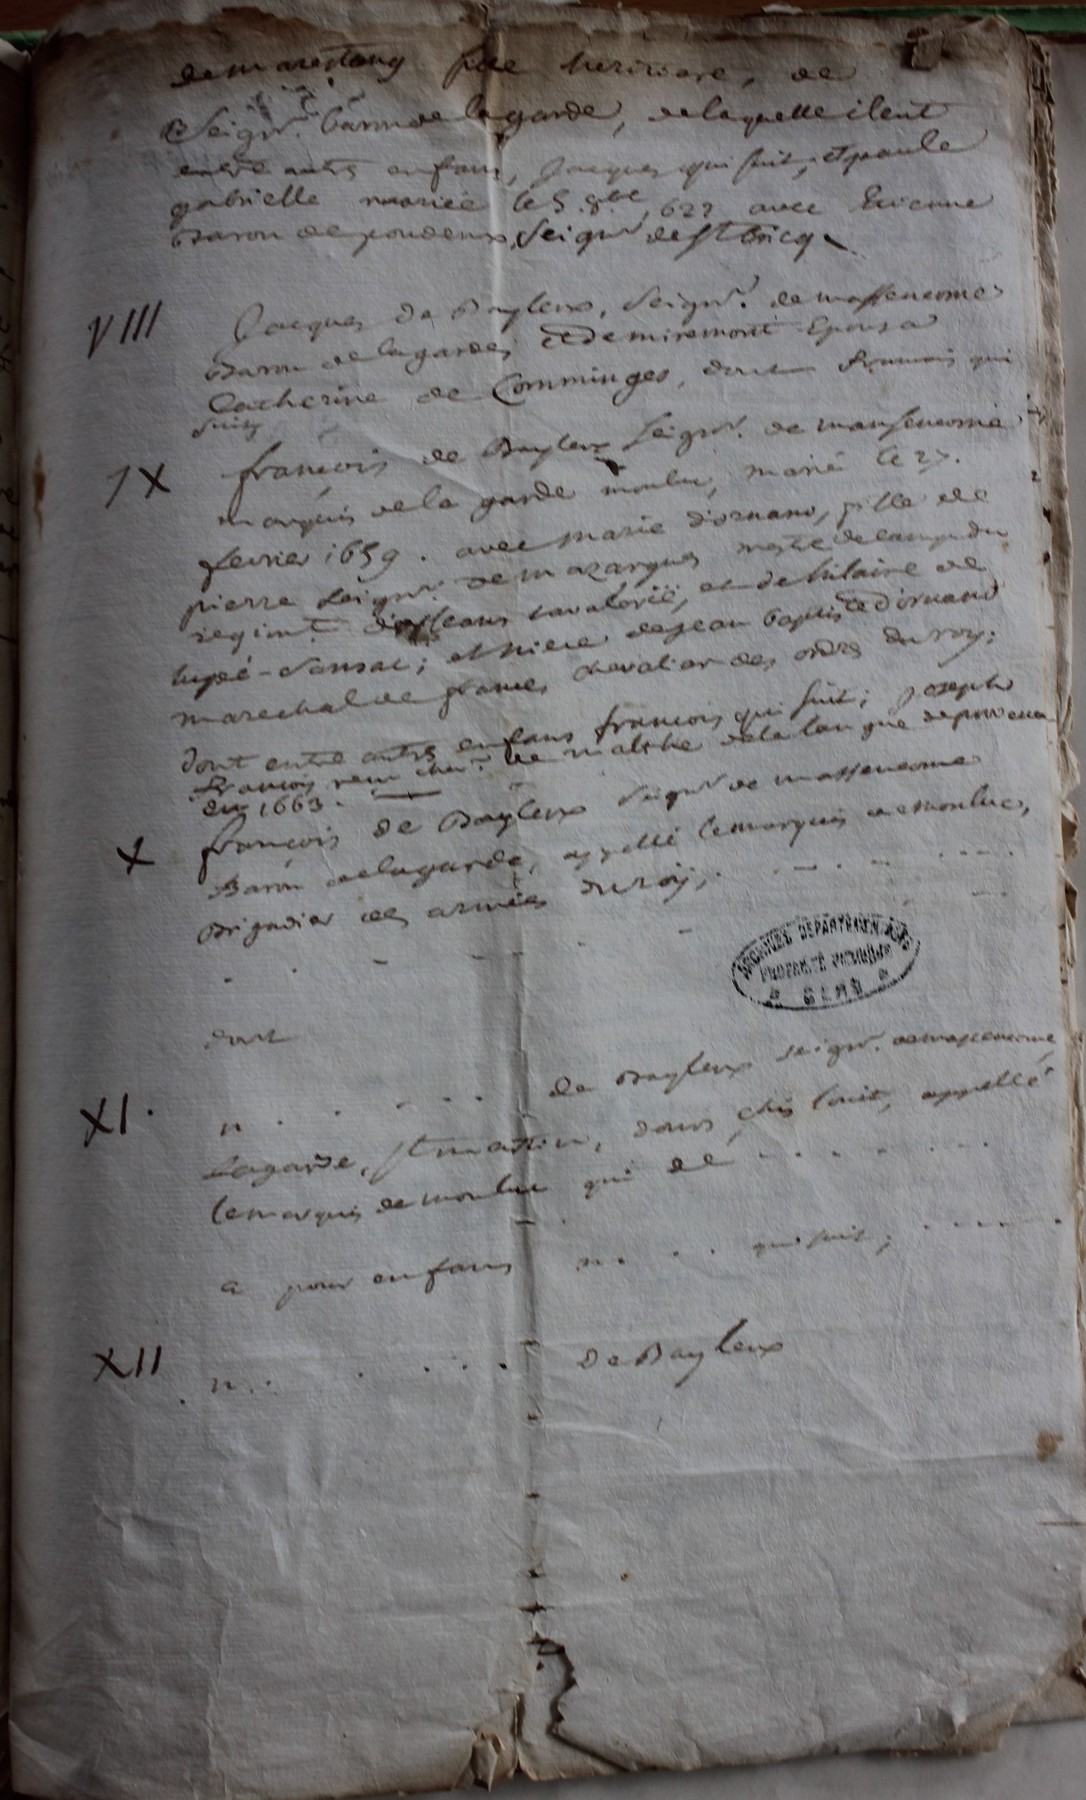 demarestang fille heritiere, de
Seignr. baron de lagarde, de laquelle il eut
entre autrs enfans, Jacques qui suit, et paule
gabrielle mariée le 5. 8bre 1622 avec Etienne
Baron de poudenx, Seignr de St Cricq
VIII Jacques de Bayleux, Seignr. de massencome
Baron de lagarde, et de miremont Epousa
Catherine de Comminges, dont francois qui
suit
IX françois de Bayleux seignr. de mansencome
marquis de la garde monluc, marié le 27.
fevrier 1659. avec marie d'ornano, fille de
pierre seignr. de mazargues mestre de camp du
regimt. d'orleans cavalerie, et de hilaire de
lupé-sansac; et niece de jean baptiste d'ornano
marechal de france chevalier des ordrs du roy;
dont entre autrs enfans francois qui suit; joseph
francois reçu cher. de malthe de la langue de provence
en 1663.
X françois de Bayleux seignr de massencome
Baron de lagarde, appellé le marquis de monluc,
Brigadier des armées du roy,
dont
XI. n. . . . . de Bayleux seignr. de massencome
Lagarde, St mattin, dours, chis louit, appellé
le marquis de monluc qui de . . . . . .
a pour enfans n. . . . qui suit; . . . . .
XII n. . . . . de Bayleux
ARCHIVES DEPARTEMENTALES
PROPRIÉTÉ PUBLIQUE
* GERS *